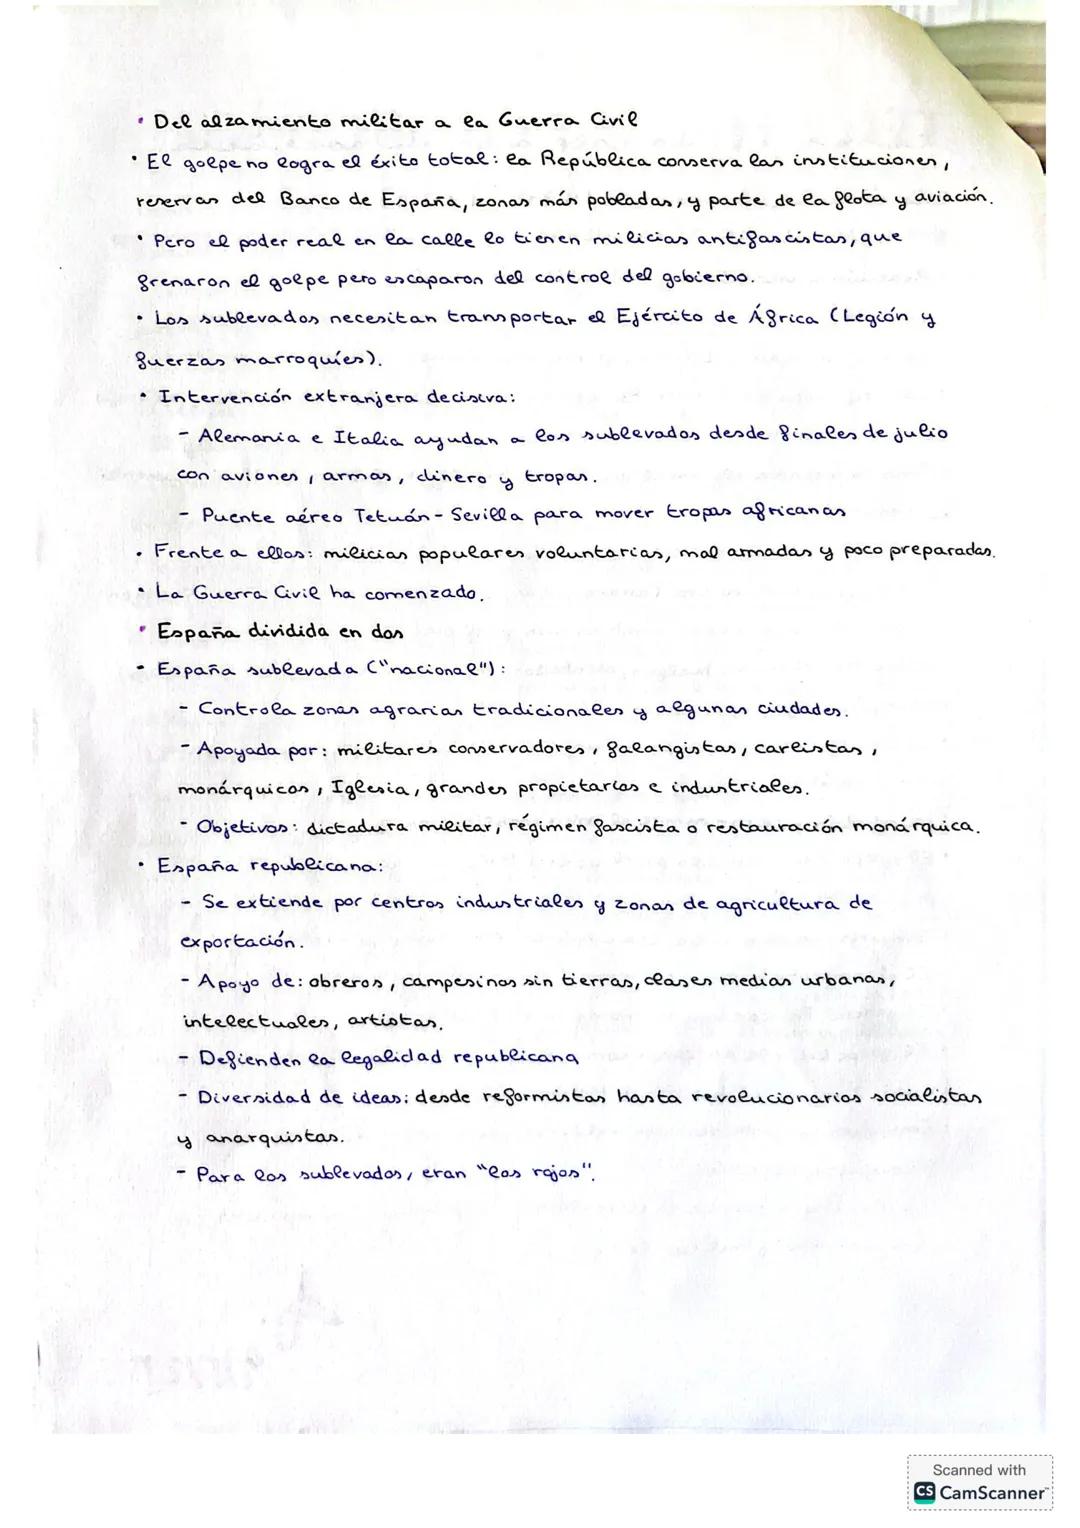 • Del alzamiento militar a la Guerra Civil
• El golpe no logra el éxito total: la República conserva las instituciones,
reservas del Banco de España, zonas más pobladas, y parte de la flota y aviación.
• Pero el poder real en la calle lo tienen milicias antifascistas, que
frenaron el golpe pero escaparon del control del gobierno.
• Los sublevados necesitan transportar el Ejército de África (Legión y
fuerzas marroquíes).
• Intervención extranjera decisiva:
- Alemania e Italia ayudan a los sublevados desde finales de julio
con aviones, armas, dinero y tropas.
- Puente aéreo Tetuán - Sevilla para mover tropas africanas
• Frente a ellos: milicias populares voluntarias, mal armadas y poco preparadas.
• La Guerra Civil ha comenzado.
• España dividida en dos
- España sublevada ("nacional"):
- Controla zonas agrarias tradicionales y algunas ciudades.
- Apoyada por: militares conservadores, falangistas, carlistas,
monárquicos, Iglesia, grandes propietarios e industriales.
- Objetivos: dictadura militar, régimen fascista o restauración monárquica.
• España republicana:
- Se extiende por centros industriales y zonas de agricultura de
exportación.
- Apoyo de: obreros, campesinos sin tierras, clases medias urbanas,
intelectuales, artistas.
- Defienden la legalidad republicana
- Diversidad de ideas: desde reformistas hasta revolucionarios socialistas
y anarquistas.
- Para los sublevados, eran "los rojos".
Scanned with
CS CamScanner